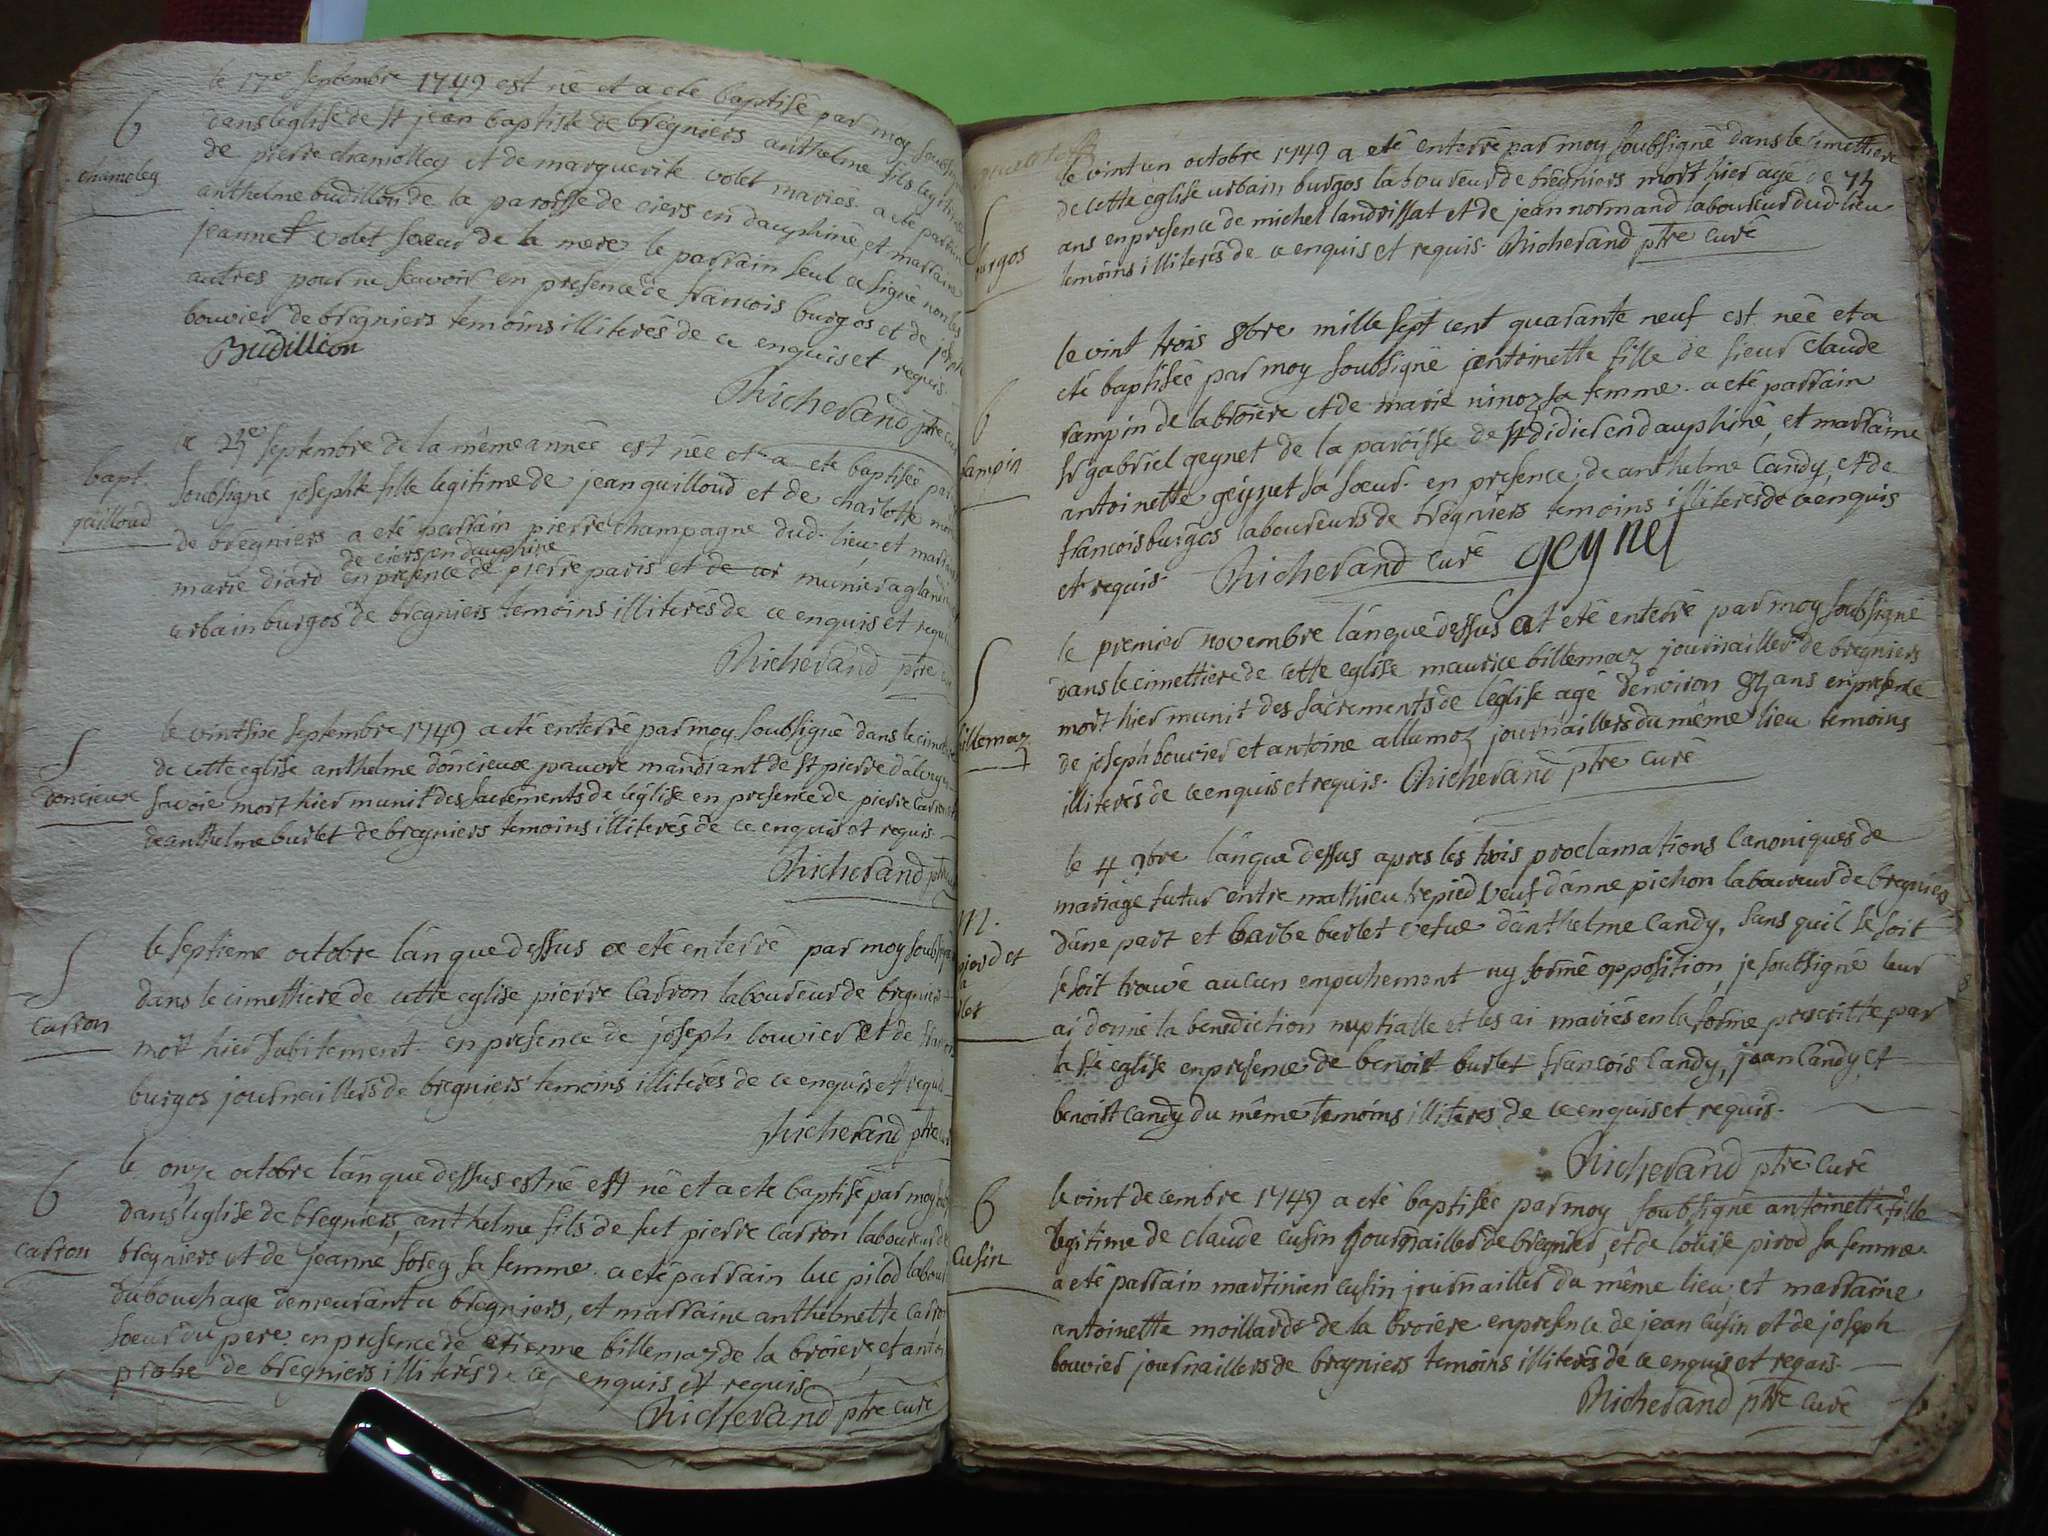 le 17e septembre 1749 est né et a eté baptisé par moy soubsigné
dans léglise de st jean baptiste de brégniers anthelme fils legitime
6
chamoley
de pierre chamolley et de marguerite volet mariés a eté parrain
anthelme budillon de la paroisse de ciers en dauphiné, et marraine
jeanne volet soeur de la mere le parrain seul a signé non les
autres pour ne scavoir en presence de francois burgos et de joseph
bouvier de brégniers temoins illiterés de ce enquis et requis.
Budillion
Richerand ptre curé
le septembre de la même année est née et a eté baptisée par
bapt.
guilloud
soubsigné josephte fille legitime de jean guilloud et de charlotte
de bregniers a eté parrain pierre champagne dud. lieu, et marraine
de ciers en dauphiné
marie diard en presence de pierre paris et de munier a
urbain burgos de bregniers temoins illiterés de ce enquis et requis
Richerand ptre
le vintsixe septembre 1749 a eté enterré par moy soubsigné dans le cimetiere
S
doncieux
de cette eglise anthelme doncieux pauvre mandiant de st pierre
savoie mort hier munit des sacrements de léglise en presence de pierre carron
de anthelme burlet de bregniers temoins illiterés de ce enquis et requis.
Richerand ptre
S
carron
le septieme octobre lán que dessus a eté enterré par moy soubsigné
dans le cimettiere de cette eglise pierre carron laboureur de bregniers
mort hier subitement. en presence de joseph bouvier et de
burgos journailliers de bregniers temoins illiterés de ce enquis et requis
Richerand ptre
le onze octobre lán que dessus est né est né et a eté baptisé par moy
6
carron
dans léglise de bregniers, anthelme fils de fut pierre carron laboureur de
bregniers et de jeanne sorey sa femme. a eté parrain luc pilod
du bouchage demeurant a bregniers, et marraine anthelmette
soeur du pere. en presence de etienne billemaz de la broiere, et
de bregniers illiterés de ce enquis et requis
Richerand ptre curé
le vint un octobre 1749 a eté enterré par moy soubsigné dans le cimettiere
S
burgos
de cette eglise urbain burgos laboureur de bregniers mort hier agé de
ans en presence de michel landrissat et de jean normand laboureur dud. lieu
temoins illiterés de ce enquis et requis. Richerand ptre curé
le vint trois 8bre mille sept cent quarante neuf est née et a
6
rampin
eté baptisée par moy soubsigné antoinette fille de sieur claude
rampin de la broiere et de marie ninoz sa femme. a eté parrain
sr gabriel geynet de la paroisse de st didier en dauphiné, et marraine
antoinette geynet sa soeur. en presence de anthelme candy, et de
francois burgos laboureurs de bregniers temoins illiterés de ce enquis
et requis. Richerand curé geynet
le premier novembre lán que dessus at eté enterré par moy soubsigné
S
billemaz
dans le cimettiere de cette eglise maurice billemaz journaillier de bregniers
mort hier munit des sacrements de léglise agé dénviron ans en presence
de joseph bouvier et antoine allumoz journailliers du même lieu temoins
illiterés de ce enquis et requis. Richerand ptre curé
le 4 9bre lán que dessus apres les trois proclamations canoniques de
m.
mariage futur entre mathieu trepied veuf dánne pichon laboureur de bregniers
dúne part et barbe burlet vefue dánthelme candy, sans quil se soit
se soit trouvé aucun empechement ny formé opposition, je soubsigné leur
ai donné la benediction nuptialle et les ai mariés en la forme prescritte par
la ste eglise en presence de benoist burlet francois candy, jean candy, et
benoist candy du même temoins illiteres de ce enquis et requis.
Richerand ptre curé
le vint decembre 1749 a eté baptisée par moy soubsigné antoinette fille
6
cusin
legitime de claude cusin journaillier de bregnier, et de loüise pirod sa femme.
a eté parrain martinien cusin journaillier du même lieu, et marraine
antoinette moillard de la broiere en presence de jean cusin et de joseph
bouvier journailliers de bregniers temoins illiterés de ce enquis et requis.
Richerand ptre curé